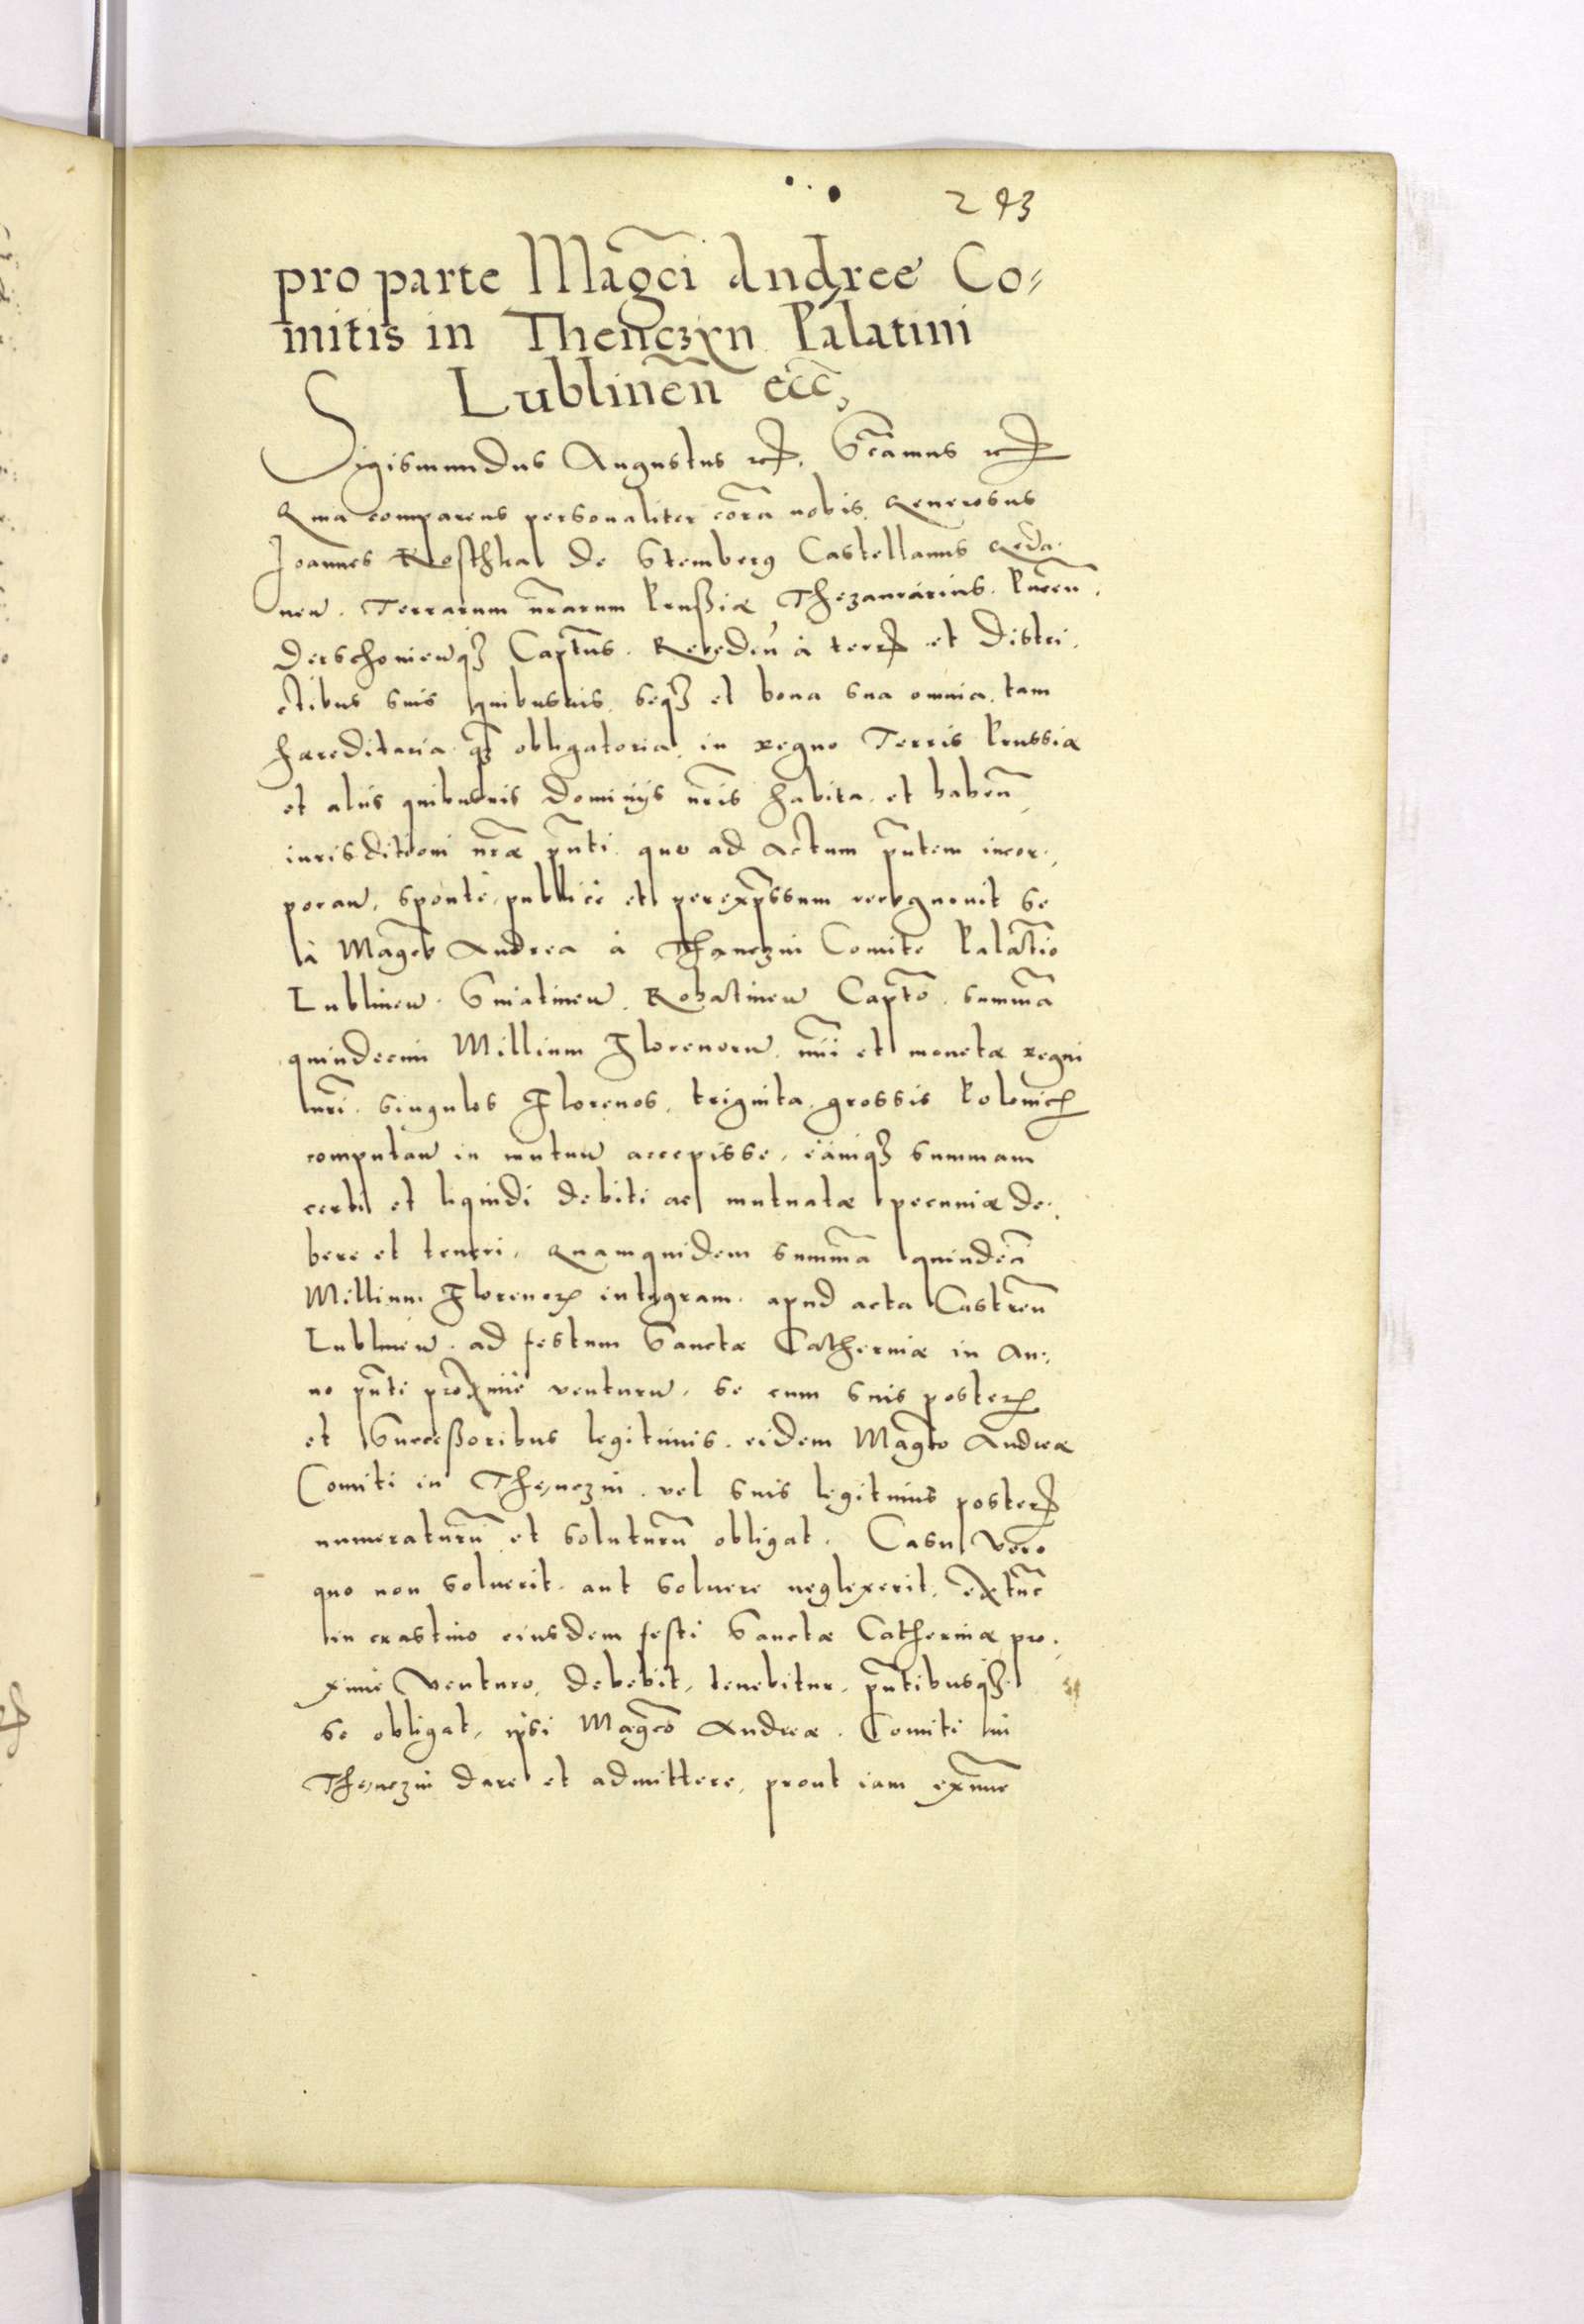 293
pro parte Magc̃i Andree Co⸗
mitis in Thenczyn Palatini
Lublineñ ecc̃,
Sigismundus Augustus etc. Sc̃amus etc.
Quia comparens personaliter corã nobis Generosus
Joannes Kosthka de Stemberg Castellanus Geda⸗
neñ. Terrarum nr̃arum Prussiæ Thezaurarius. Puceñ.
Derschouieñq3 Capt̃us. Recedeñ à terr̃ et Distri⸗
ctibus suis quibusuis. seq3 et bona sua omnia tam
hæreditaria q̃3 obligatoria in regno Terris Prussiæ
et alijs quibusuis Dominijs nr̃is habita et habeñ
iurisditioni nr̃æ pñti quo ad Actum pñtem incor⸗
poran̄, sponte, publicè et per expr̃ssum recognouit se
à Magco Andrea à Thenczin Comite Palat̃io
Lublineñ. Sniatineñ. Rohatineñ Capt̃o. summã
quindecim Millium Florenorũ. nr̃i et monetæ regni
nr̃i. singulos Florenos, triginta grossis Polonic̃
computañ in mutuũ accepisse, eamq3 summam
certi et liquidi debiti ac mutuatæ pecuniæ de⸗
bere et teneri, Quamquidem summã quindecĩ
Millium Florenor̃ integram apud acta Castreñ
Lublineñ. ad festum Sanctæ Catherinæ in An⸗
no pñti proximè venturũ. se cum suis poster̃
et Successoribus legitimis. eidem Magco Andreæ
Comiti in Thenczin. vel suis legitimis poster̃
numeraturũ et soluturũ obligat. Casu verò
quo non soluerit aut soluere neglexerit. extunc̃
in crastino eiusdem festi Sanctæ Catherinæ pro⸗
ximè venturo, debebit, tenebitur, pñtibusq3
se obligat, ipsi Magco Andreæ. Comiti in
Thenczin dare et admittere, prout iam exnunc